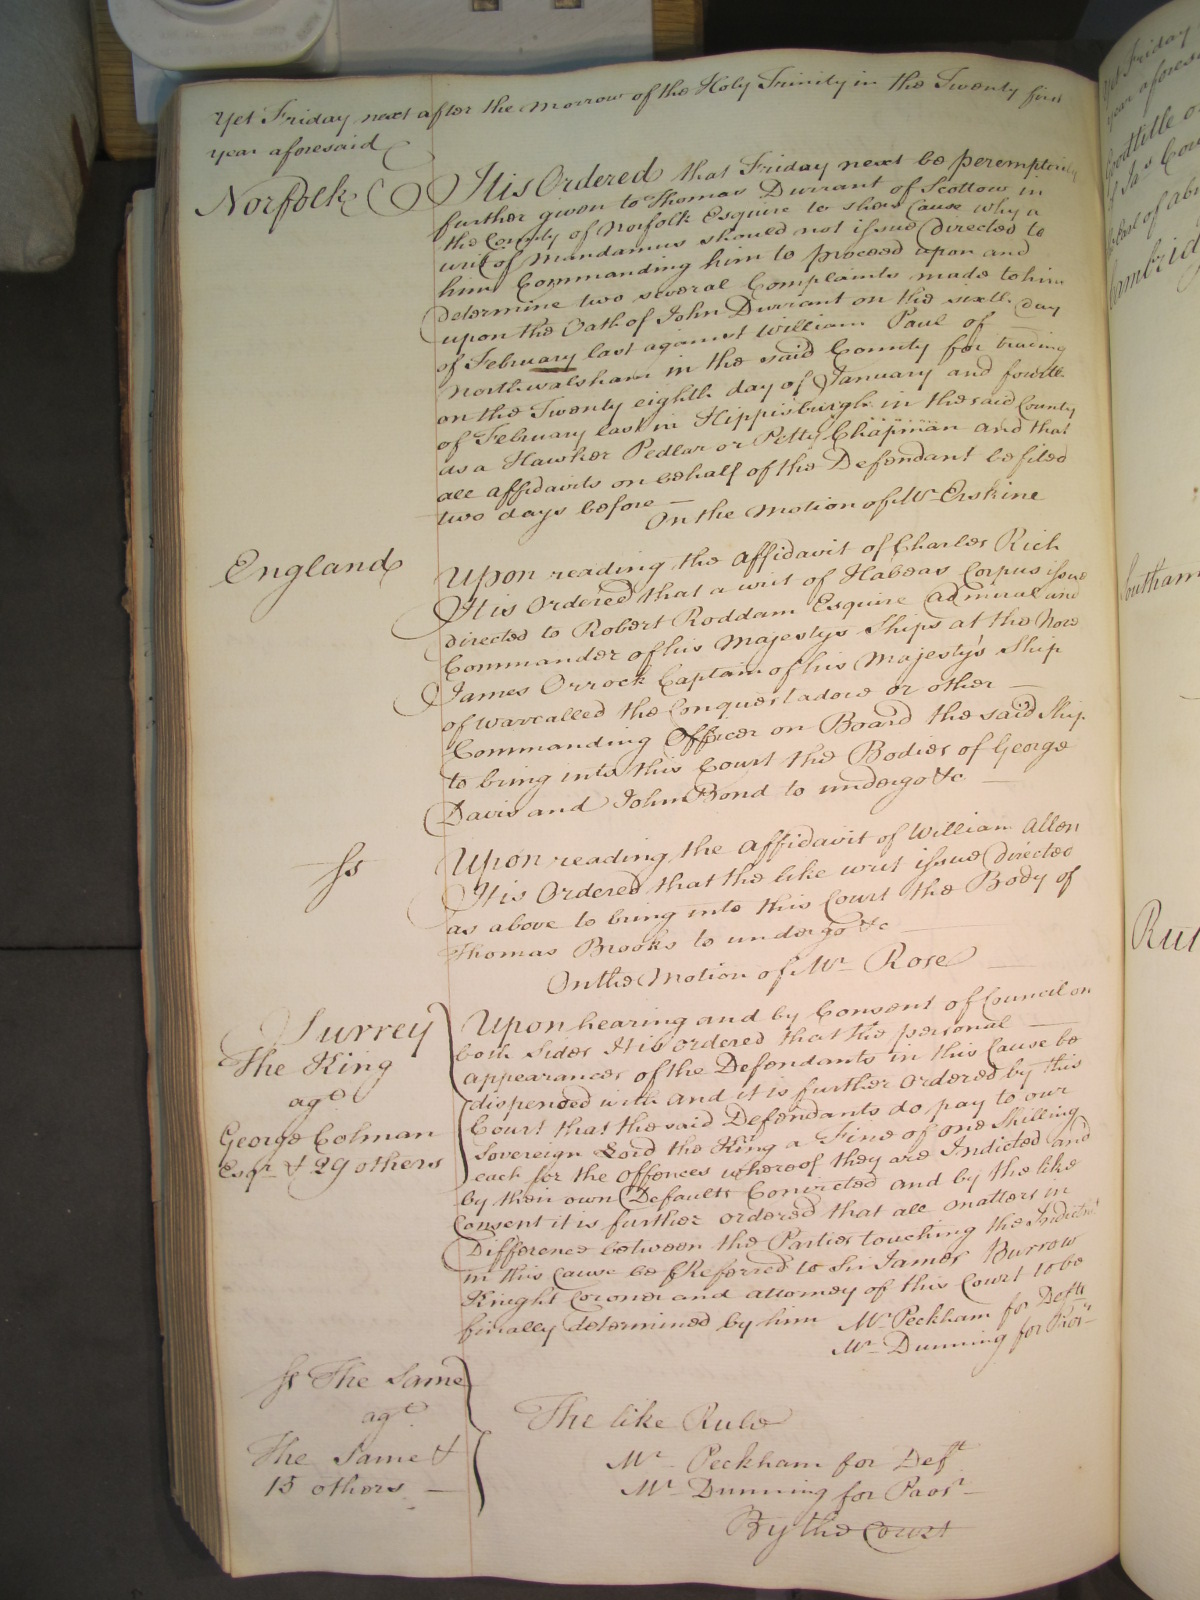 Yet Friday next after the Morrow of the Holy Trinity in the Twenty first
year aforesaid
Norfolk
It is Ordered that Friday next be peremptorily
further given to Thomas Durrant of Scottow in
the County of Norfolk Esquire to shew Cause why a
writ of Mandamus should not issue directed to
him Commanding him to proceed upon and
determine two several Complaints made to him
upon the Oath of John Durrant on the sixth day
of February last against William Paul of
Northwalsham in the said County for trading
on the Twenty eighth day of January and fourth
of February last in Hippisburgh in the said County
as a Hawker Pedlar or Petty Chapman and that
all affidavits on behalf of the Defendant be filed
two days before
On the Motion of Mr Erskine
England
Upon reading the affidavit of Charles Rich
It is Ordered that a writ of Habeas Corpus issue
directed to Robert Roddam Esquire Admiral and
Commander of his Majestys Ships at the Nore
James Orrock Captain of his Majesty's Ship
of War called the Conquestadore or other
Commanding Officer on Board the said Ship
to bring into this Court the Bodies of George
Davis and John Bond to undergo &c
Ss
Upon reading the affidavit of William Allen
It is Ordered that the like writ issue directed
as above to bring into this Court the Body of
Thomas Brooks to undergo &c
On the Motion of Mr Rose
Surrey
The King
agt
George Colman
Esqr & 29 others
Upon hearing and by Consent of Council on
both sides It is ordered that the personal
appearances of the Defendants in this Cause be
dispensed with and it is further ordered by this
Court that the said Defendants do pay to our
Sovereign Lord the King a Fine of one Shilling
each for the Offences whereof they are Indicted and
by their own Defaults Convicted and by the like
Consent it is further ordered that all matters in
Difference between the Parties touching the Indictmt
in this Cause be Referred to Sir James Burrow
Knight Coroner and attorney of this Court to be
finally determined by him
Mr Peckham for Defts
Mr Dunning for Prosr
Ss The Same
agt
The Same &
15 others
The like Rule
Mr Peckham for Deft
Mr Dunning for Prosr
By the Court